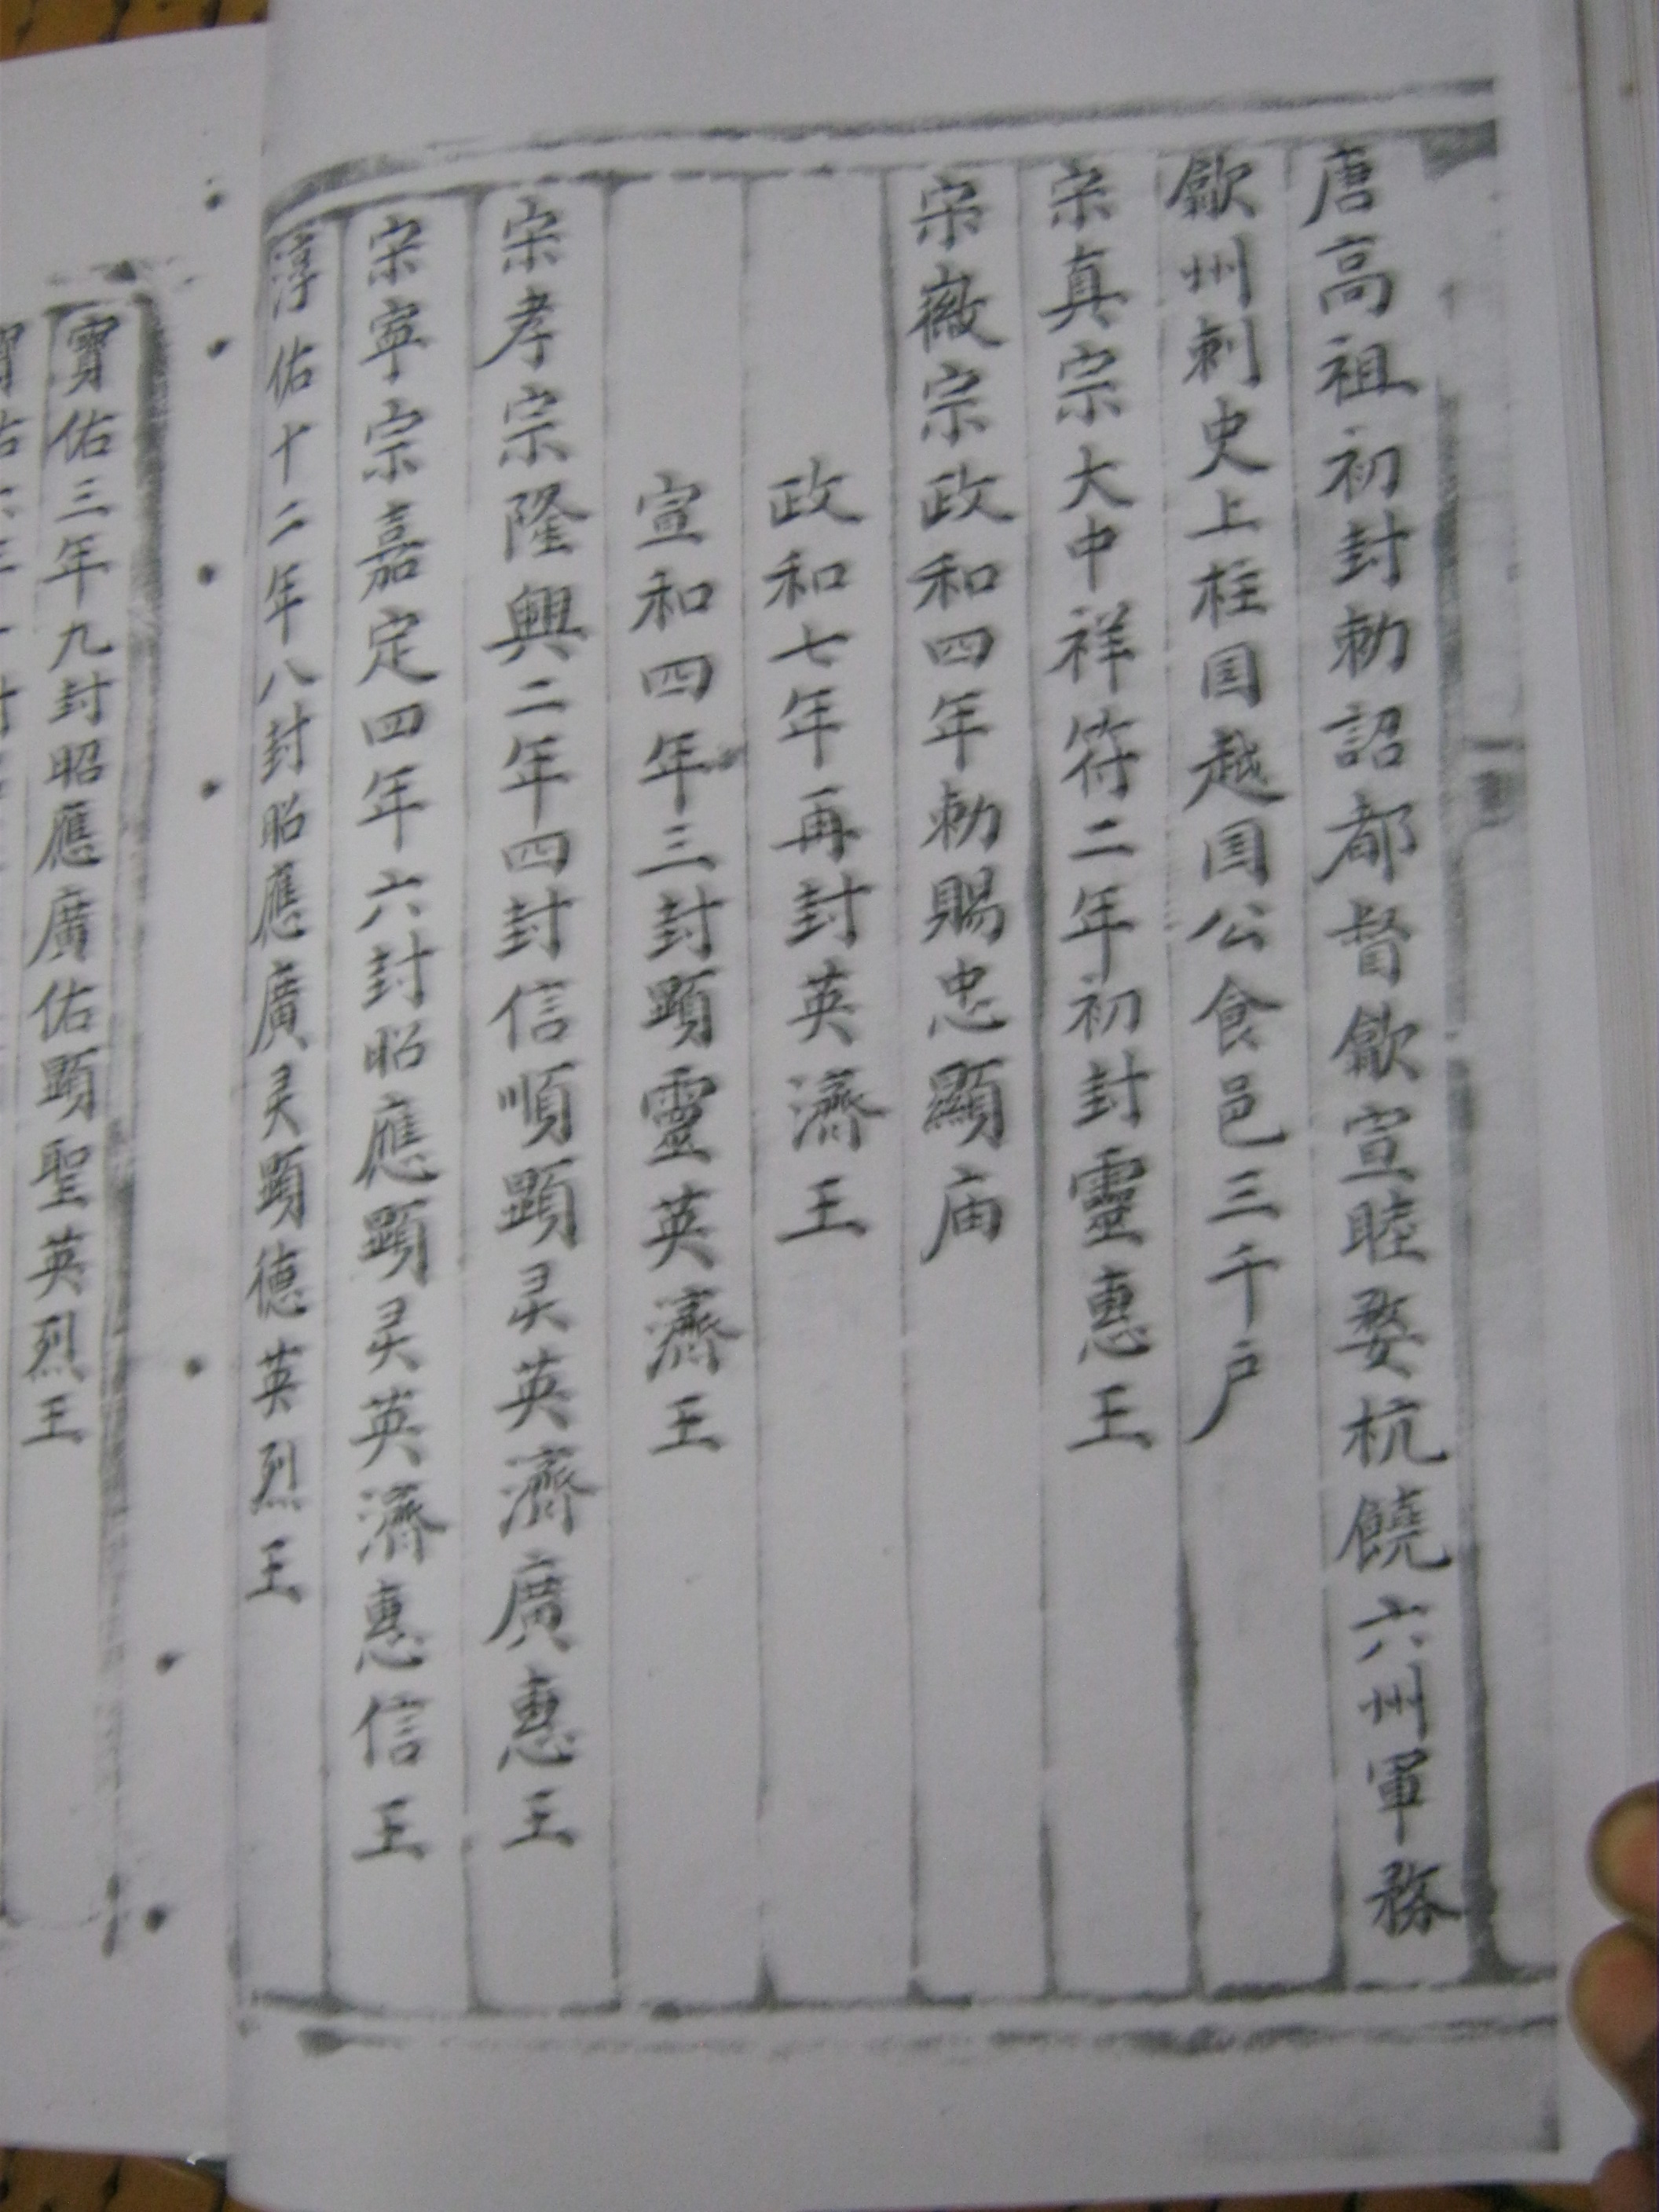 唐高祖初封勅詔都督歙宣睦婺杭饒六州軍務
歙州刺史上柱国越国公食邑三千户
宋真宗大中祥符二年初封靈惠王
宋徽宗政和四年勅賜忠顯庙
政和七年再封英濟王
宣和四年三封顕靈英濟王
宋孝宗隆興二年四封信順顕灵英濟廣惠王
宋寧宗嘉定四年六封昭應顕灵英濟惠信王
淳佑十二年八封昭應廣灵顕德英烈王
寳佑三年九封昭應廣佑顕聖英烈王